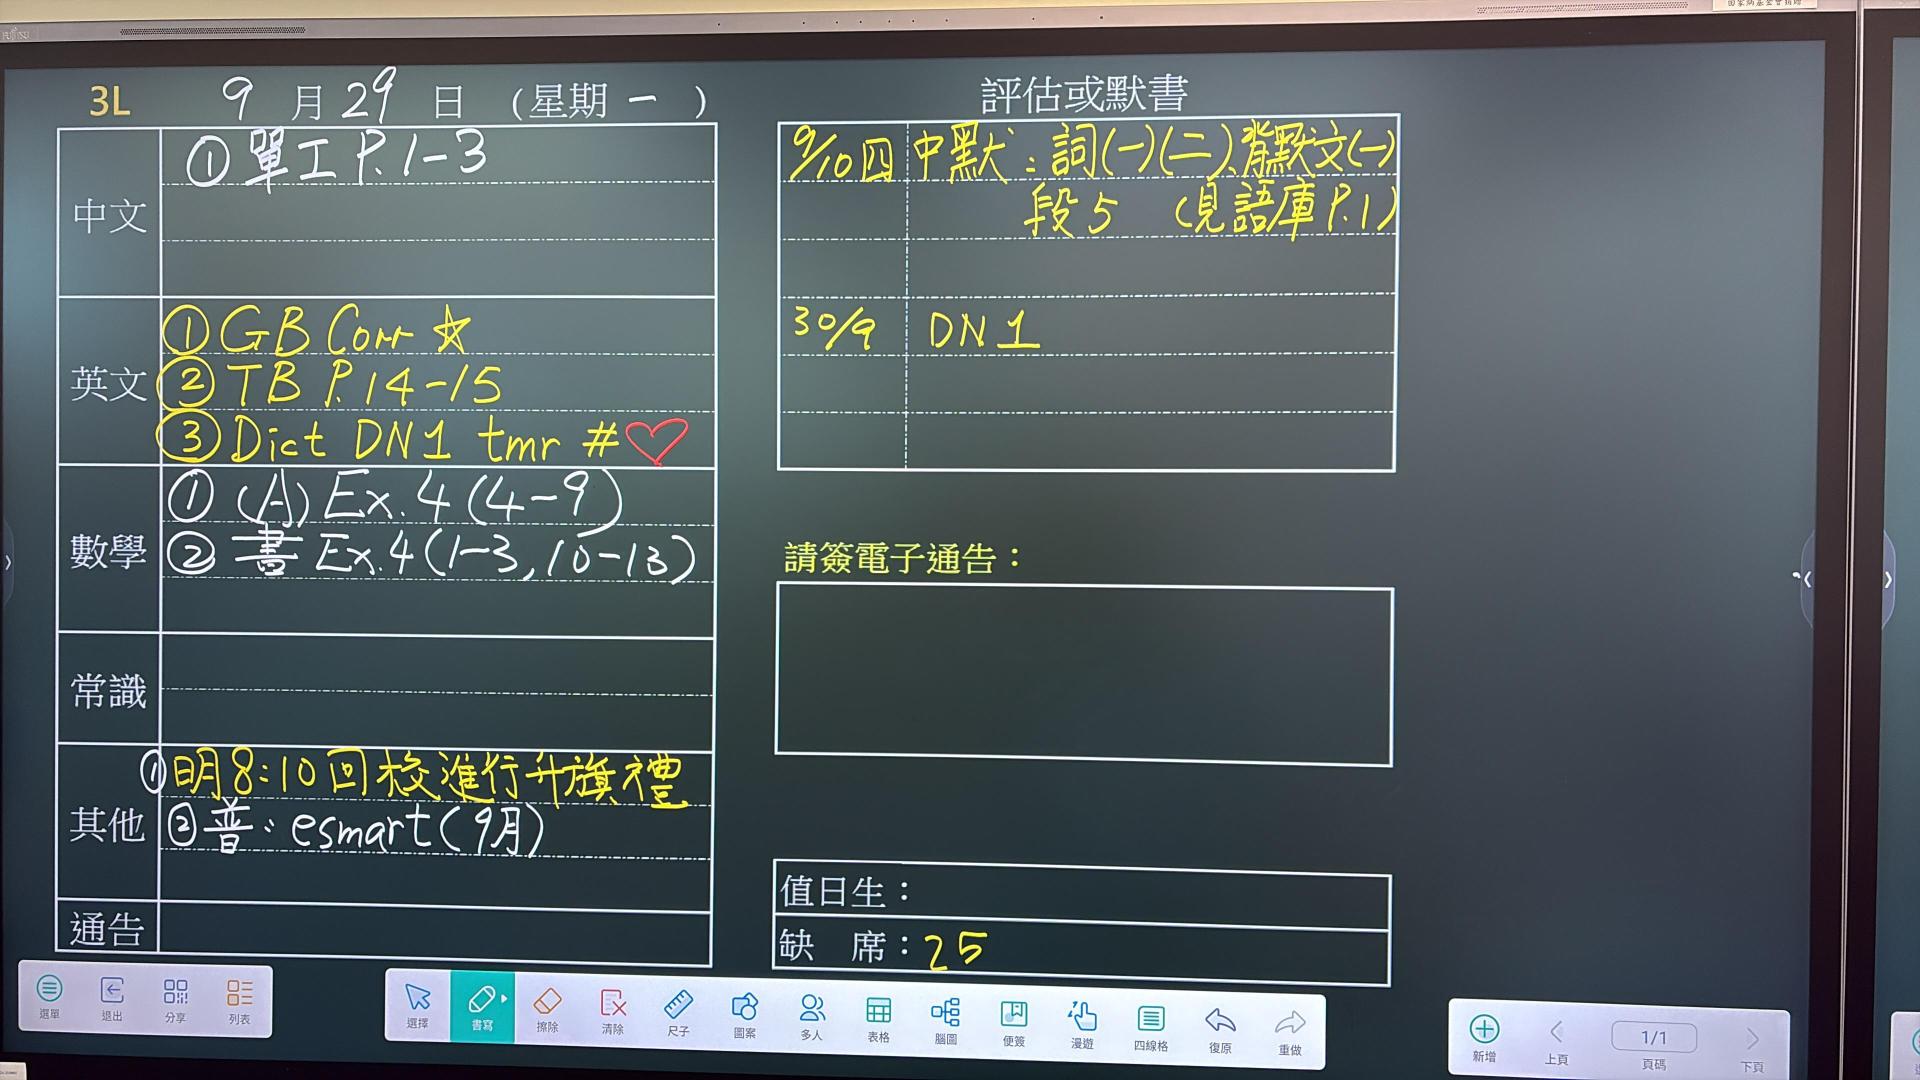 FUJITSU
3L 9月29日（星期一）
中文
①單工 P.1-3
英文
①GB Corr ☆
②TB P.14-15
③Dict DN1 tmr #♡
數學
①(A) Ex.4(4-9)
②書 Ex.4(1-3,10-13)
常識
其他
①明8:10回校進行升旗禮
②普：esmart(9月)
通告
評估或默書
9/10四 中默：詞(一)(二)、背默文(一)
段5 (見語庫P.1)
30/9 DN1
請簽電子通告：
值日生：
缺 席：25
選單 退出 分享 列表
選擇 書寫 擦除 清除 尺子 圖案 多人 表格 腦圖 便簽 漫遊 四線格 復原 重做
新增 上頁 1/1 頁碼 下頁